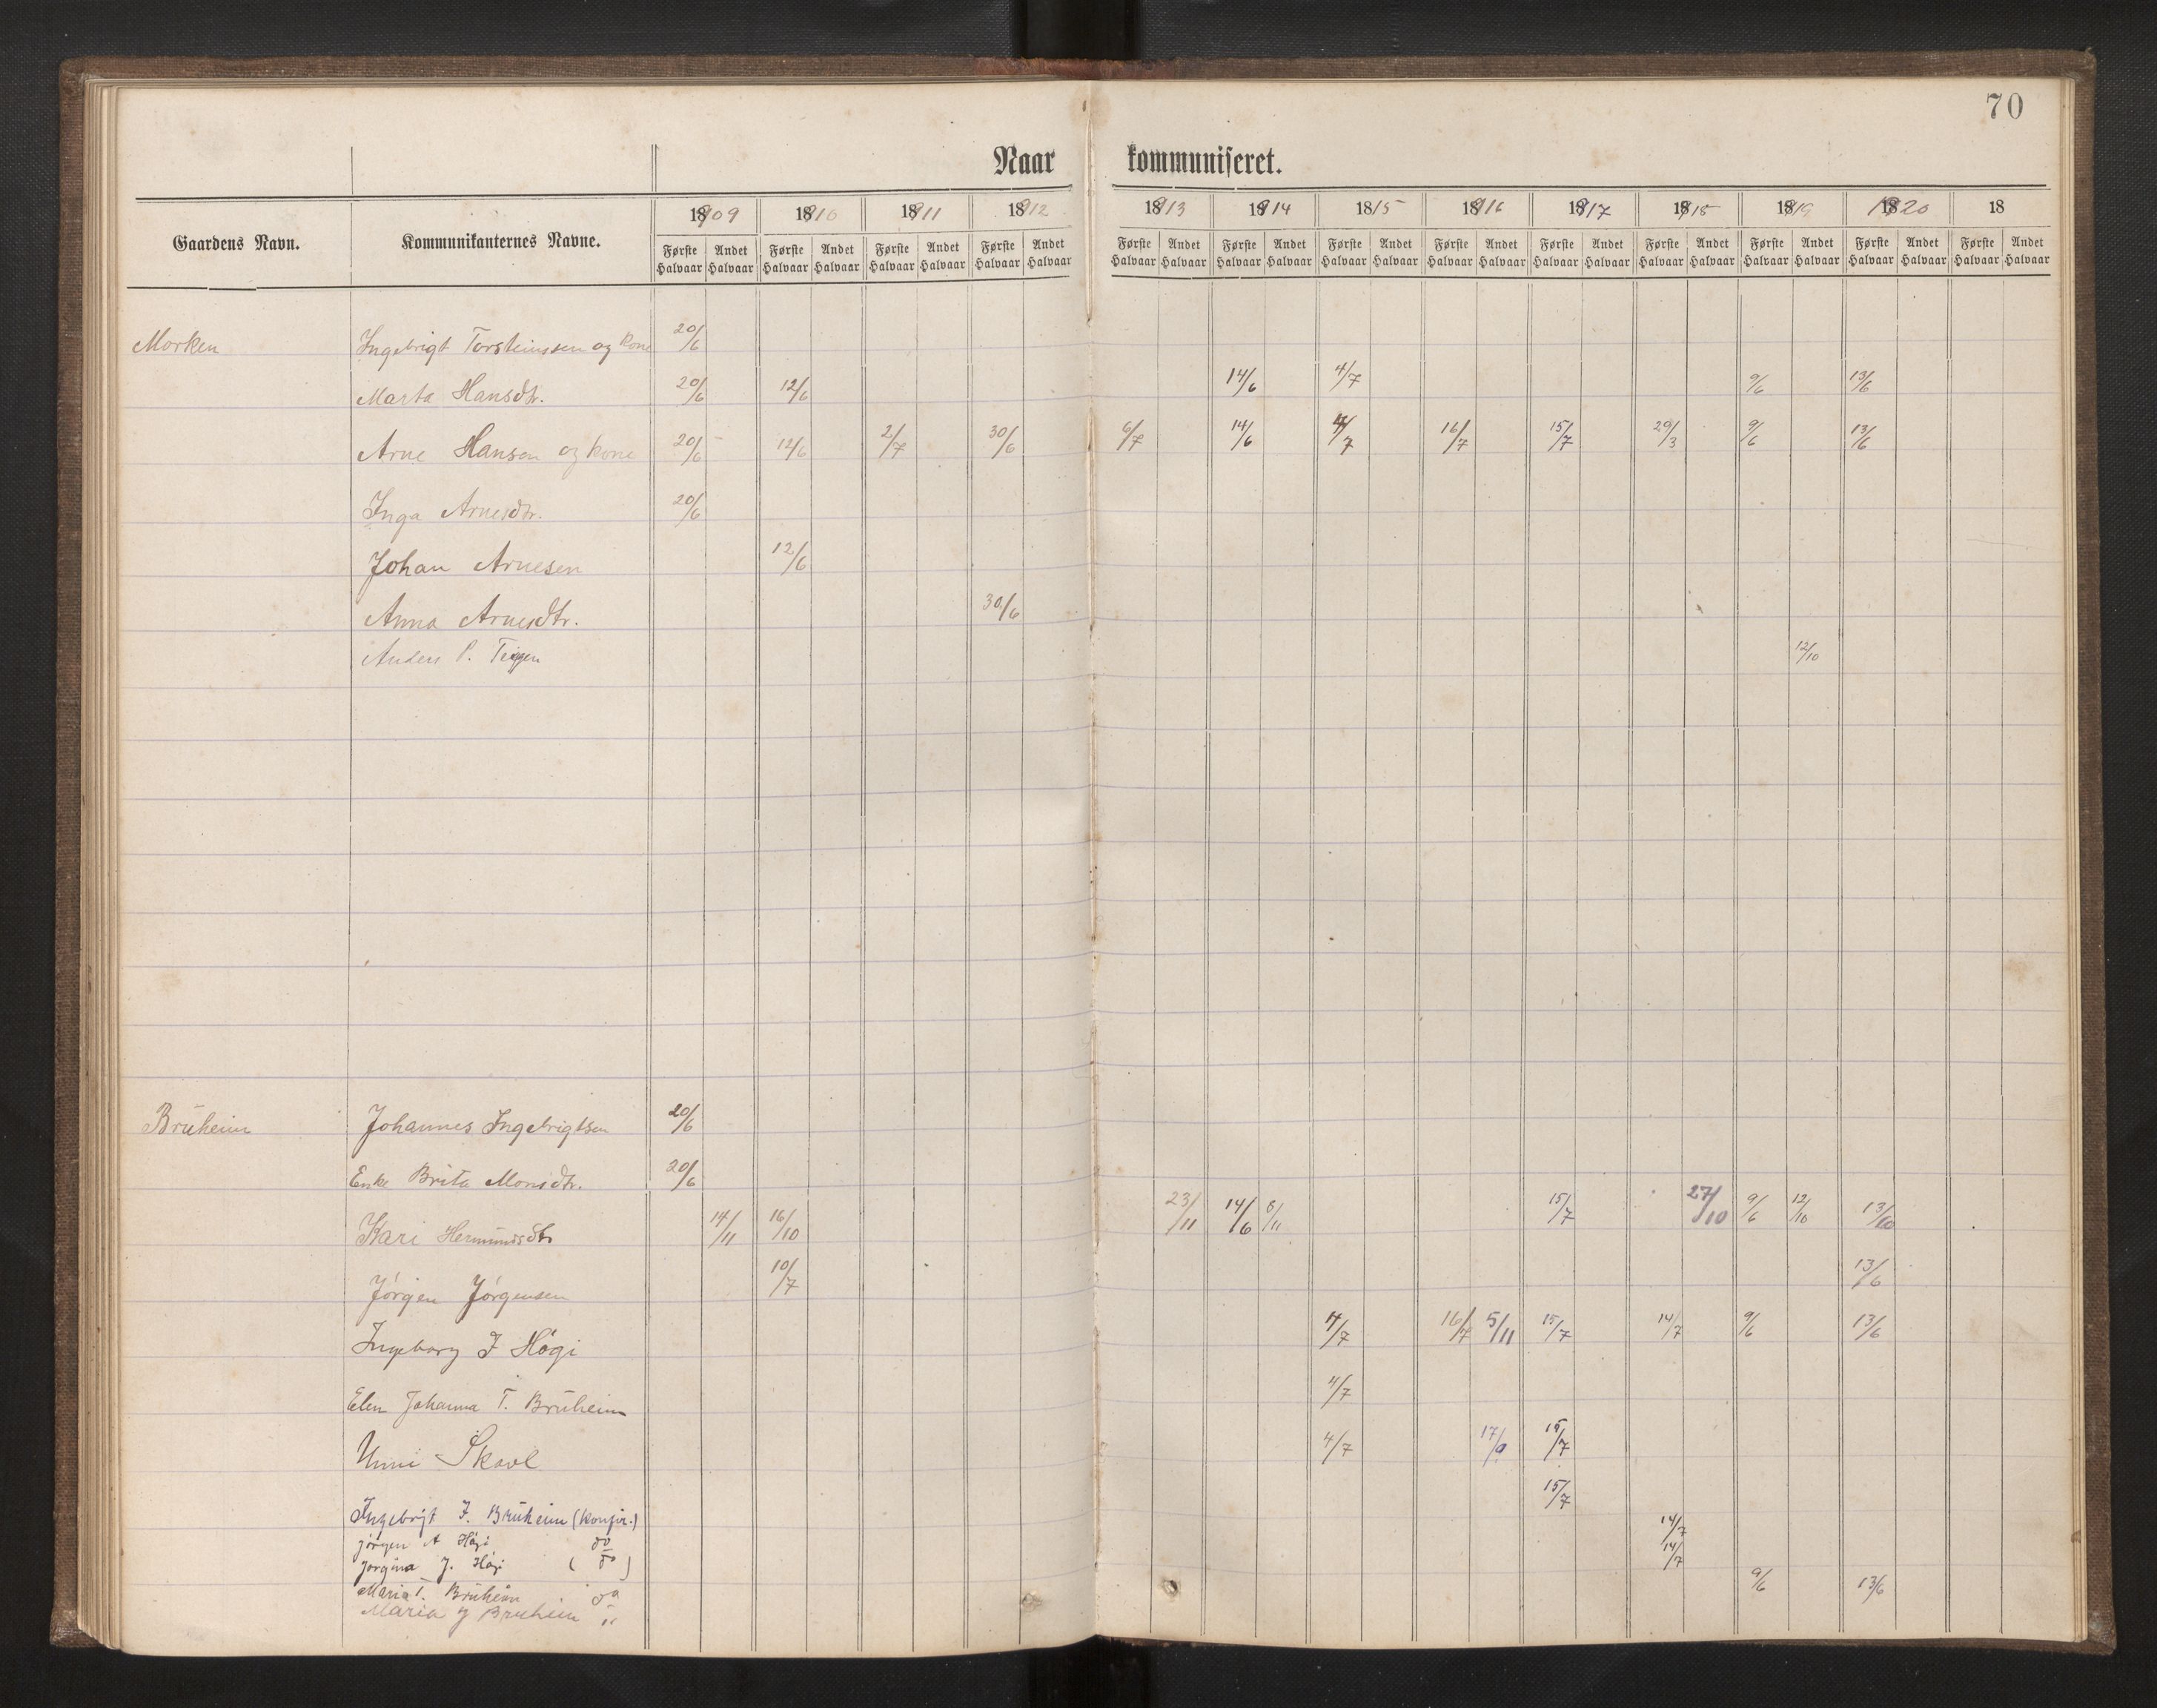 70
Naar kommuniseret.
Gaardens Navn. Kommunikanternes Navne. 1909 1910 1911 1912 1913 1914 1815 1916 1917 1918 1919 1920 18
Første Halvaar Andet Halvaar Første Halvaar Andet Halvaar Første Halvaar Andet Halvaar Første Halvaar Andet Halvaar Første Halvaar Andet Halvaar Første Halvaar Andet Halvaar Første Halvaar Andet Halvaar Første Halvaar Andet Halvaar Første Halvaar Andet Halvaar Første Halvaar Andet Halvaar Første Halvaar Andet Halvaar Første Halvaar Andet Halvaar Første Halvaar Andet Halvaar
Morken Ingebrigt Torsteinssen og kone 20/6
Marta Hansdtr. 20/6 12/6 14/6 4/7 9/6 13/6
Arne Hansen og kone 20/6 12/6 2/7 30/6 6/7 14/6 4/7 16/7 15/7 29/3 9/6 13/6
Inga Arnesdtr. 20/6
Johan Arnesen 12/6
Anna Arnesdtr. 30/6
Anders P. Teigen 12/10
Bruheim Johannes Ingebrigtsen 20/6
Enke Brita Monsdtr. 20/6
Kari Hermundsdtr 14/11 16/10 23/11 14/6 8/11 15/7 27/10 9/6 12/10 13/10
Jørgen Jørgensen 10/7 13/6
Ingeborg J Høgi 4/7 16/7 5/11 15/7 14/7 9/6 13/6
Elen Johanna T. Bruheim 4/7
Unni Skavl 4/7 17/9 15/7
Ingebrigt J. Bruheim (konfir.) 15/7
Jørgen A Høgi do 14/7
Jørgina J. Høgi (do) 14/7
Maria T. Bruheim do 9/6 13/6
Maria J Bruheim "